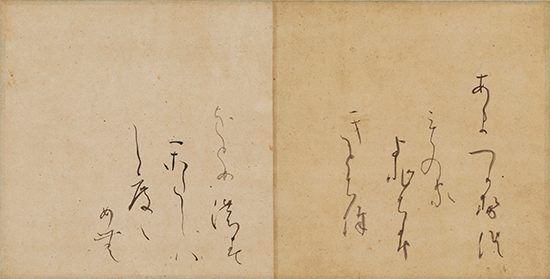 あまつか勢
くものか
よひちふ
きとち余
をとめ濃す
かたしハ
し度ゝ
め無